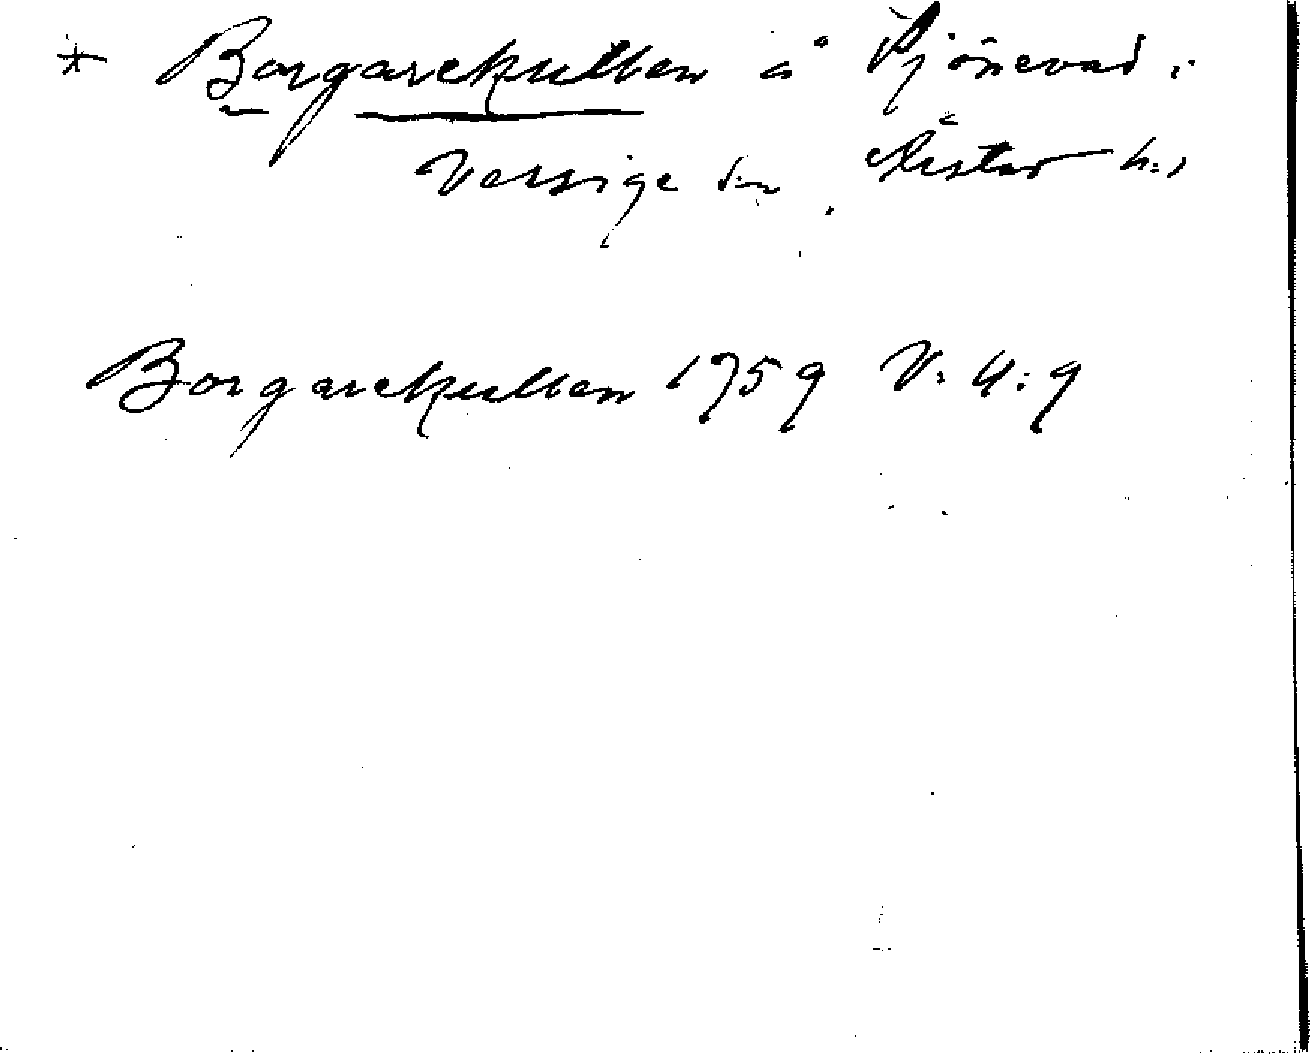 * Borgarekullen å Tjönevad i
Vessige sn, Årstad h:d
Borgarekullen 1759 V: 4: 9